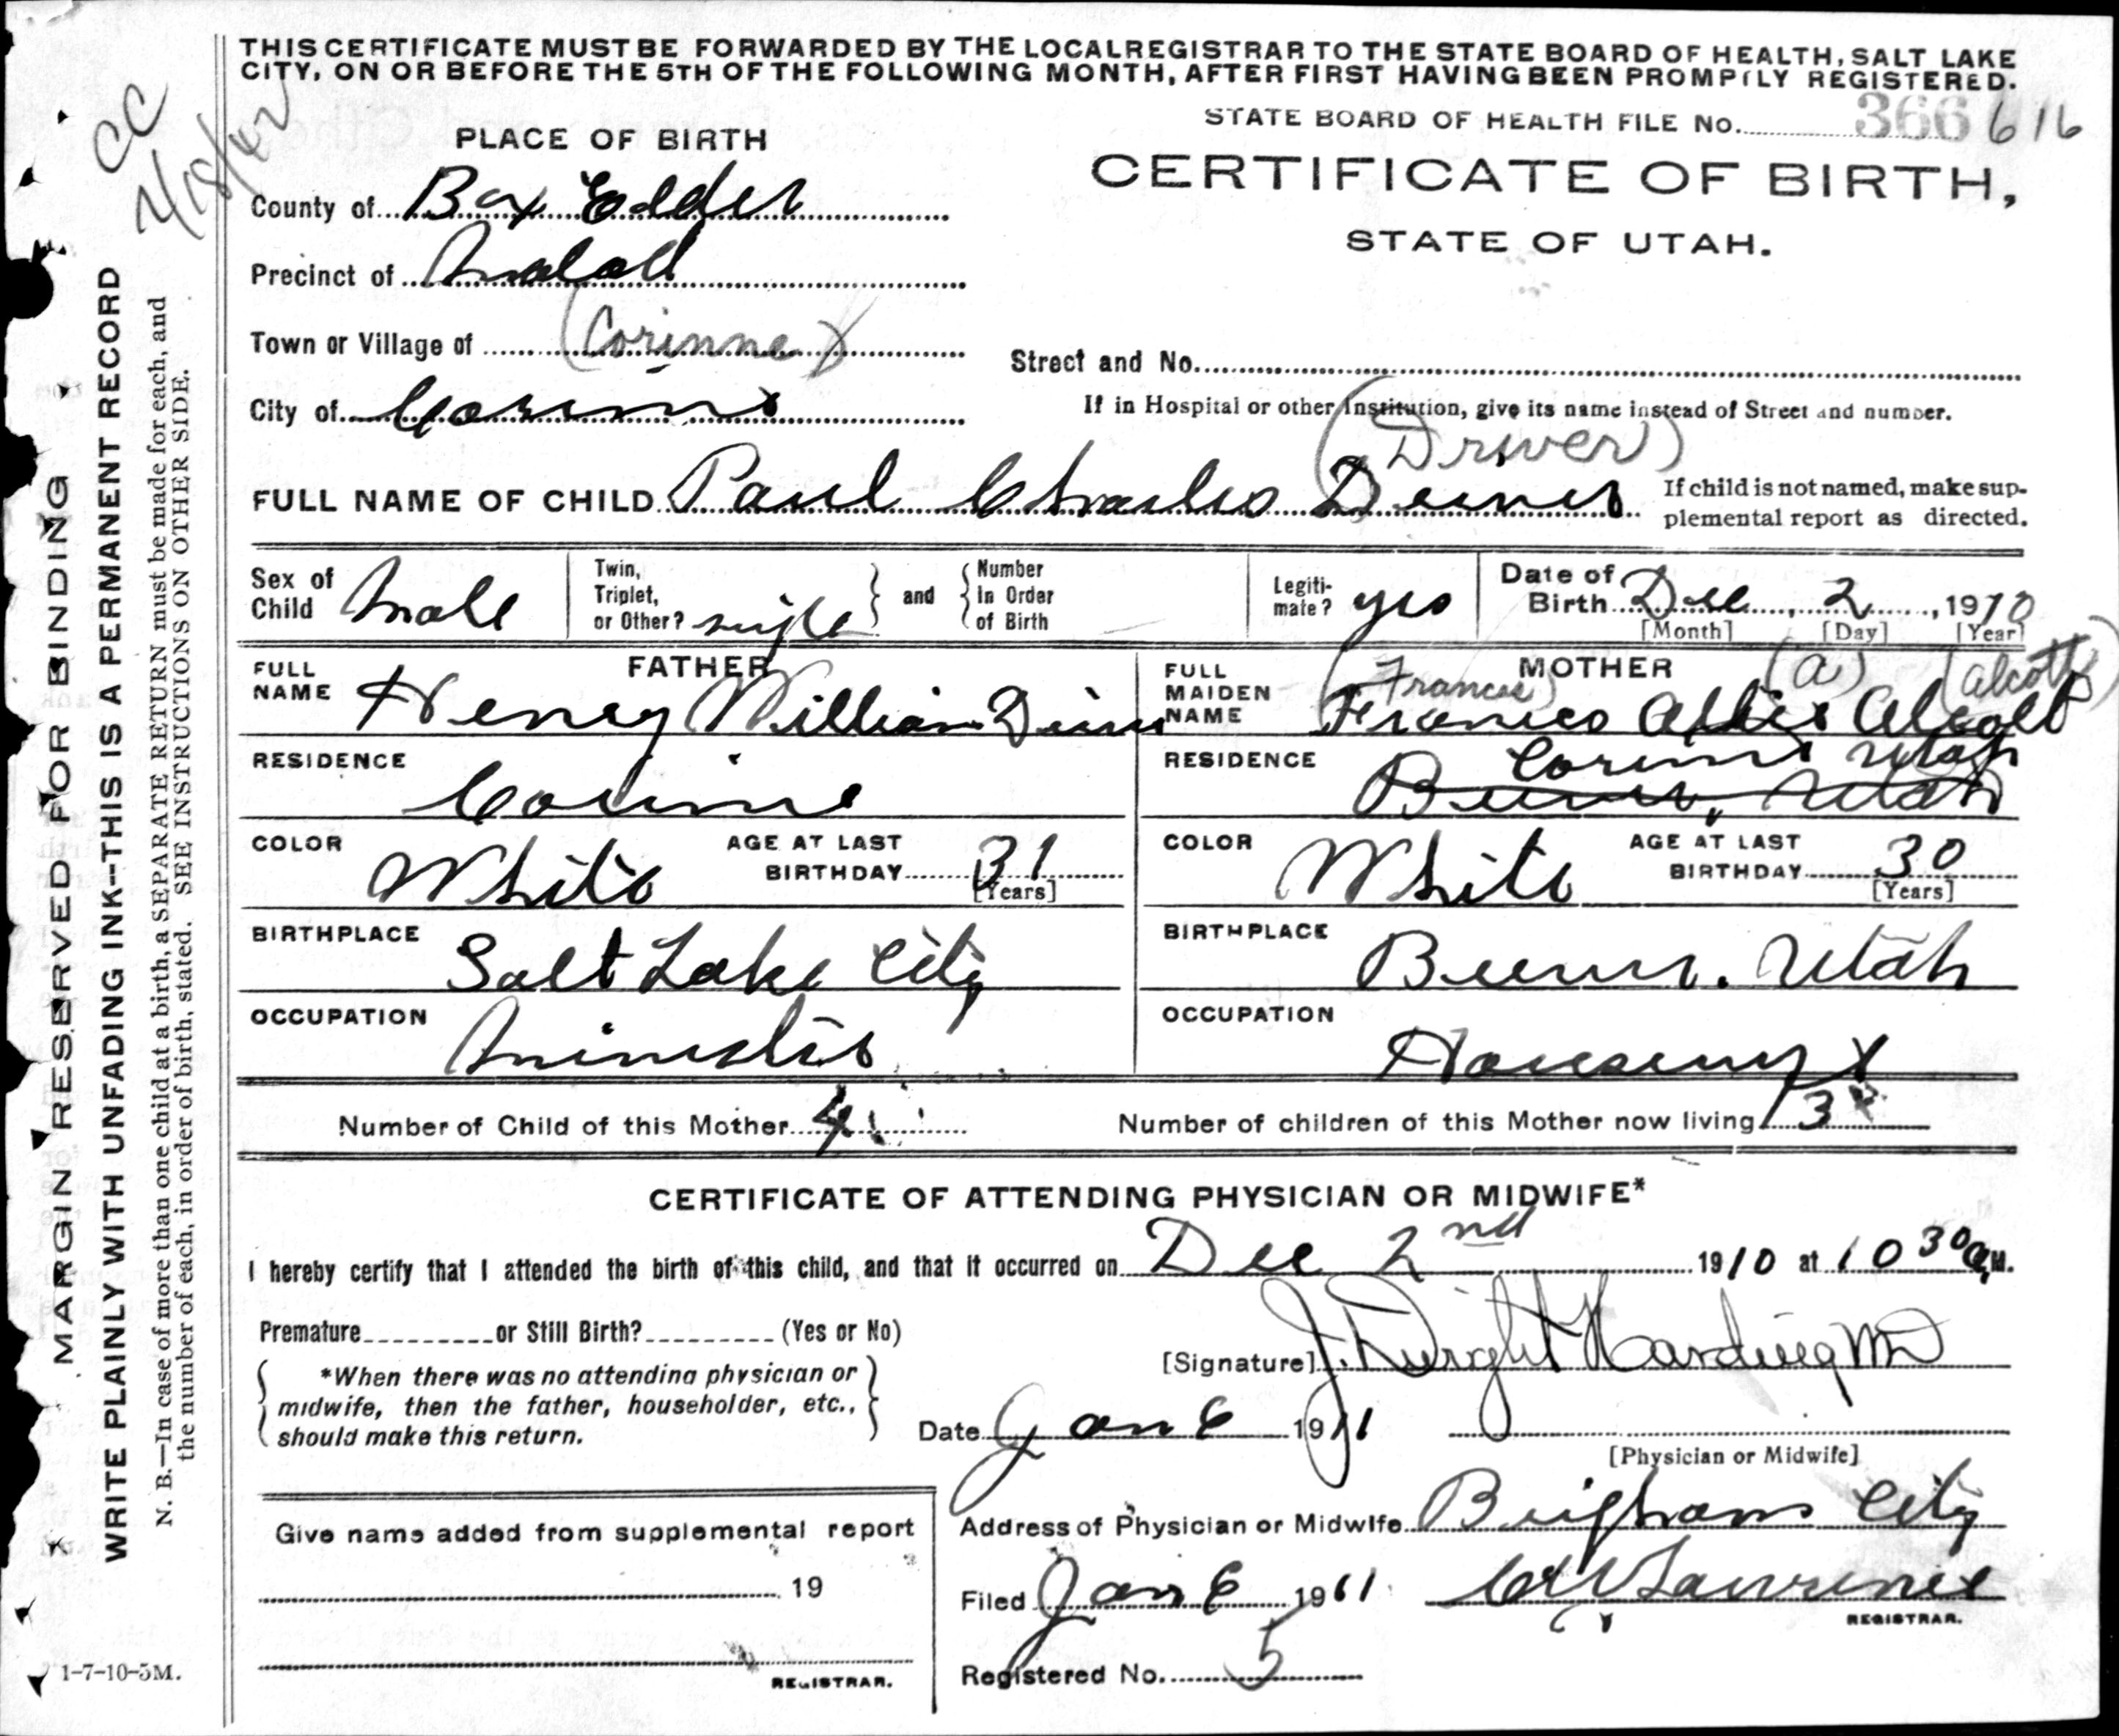 THIS CERTIFICATE MUST BE FORWARDED BY THE LOCAL REGISTRAR TO THE STATE BOARD OF HEALTH, SALT LAKE
CITY, ON OR BEFORE THE 5TH OF THE FOLLOWING MONTH, AFTER FIRST HAVING BEEN PROMPTLY REGISTERED.
CC
2/18/42
STATE BOARD OF HEALTH FILE No. 366 616
PLACE OF BIRTH
CERTIFICATE OF BIRTH,
STATE OF UTAH.
County of Box Elder
Precinct of Malad
Town or Village of (Corinne)
Street and No.
City of Corinne
If in Hospital or other Institution, give its name instead of Street and number.
(Driver)
FULL NAME OF CHILD Paul Charles
If child is not named, make sup-
plemental report as directed.
Sex of Child Male
Twin, Triplet, or Other? single
and
Number In Order of Birth
Legiti-mate? yes
Date of Birth Dec 2, 1910
[Month] [Day] [Year]
FATHER
FULL NAME Henry William
RESIDENCE
Corinne
COLOR White
AGE AT LAST BIRTHDAY 31
[Years]
BIRTHPLACE
Salt Lake City
OCCUPATION
Minister
MOTHER
(Frances) (a) (Alcott)
FULL MAIDEN NAME Frances
RESIDENCE
Corinne Utah
Utah
COLOR White
AGE AT LAST BIRTHDAY 30
[Years]
BIRTHPLACE
Utah
OCCUPATION
Number of Child of this Mother 4
Number of children of this Mother now living 3
CERTIFICATE OF ATTENDING PHYSICIAN OR MIDWIFE*
I hereby certify that I attended the birth of this child, and that it occurred on Dec 2nd 1910 at 10 30 a M.
Premature or Still Birth? (Yes or No)
*When there was no attending physician or
midwife, then the father, householder, etc.,
should make this return.
[Signature] J. Dwight Harding MD
Date Jan 6 1911
[Physician or Midwife]
Address of Physician or Midwife Brigham City
Filed Jan 6 1911 Lawrence
REGISTRAR.
Registered No. 5
Give name added from supplemental report
19
REGISTRAR.
MARGIN RESERVED FOR BINDING
WRITE PLAINLY WITH UNFADING INK--THIS IS A PERMANENT RECORD
N. B.—In case of more than one child at a birth, a SEPARATE RETURN must be made for each, and
the number of each, in order of birth, stated. SEE INSTRUCTIONS ON OTHER SIDE.
1-7-10-5M.